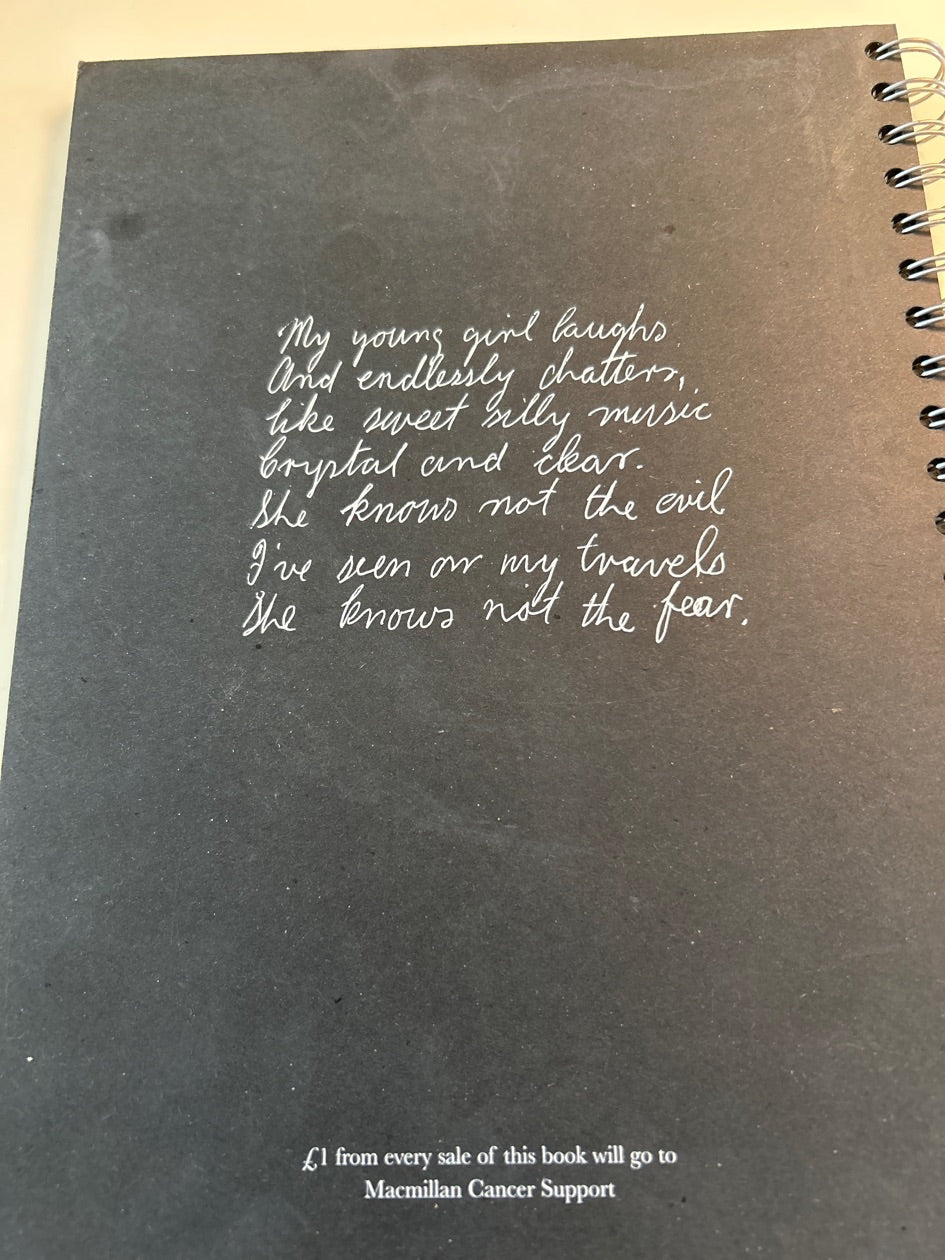 My young girl laughs
And endlessly chatters,
like sweet silly music
Crystal and clear.
She knows not the evil
I've seen on my travels
She knows not the fear.
£1 from every sale of this book will go to
Macmillan Cancer Support